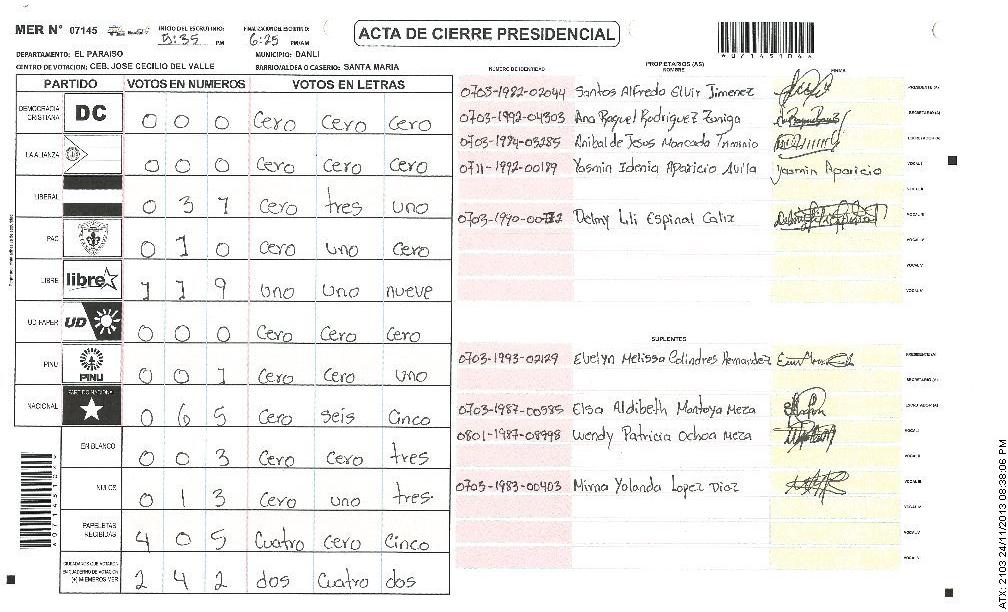 MER N° 07145
INICIO DEL ESCRUTINIO: 5:35 PM
FINALIZACION DEL ESCRUTINIO: 6:25 PM/AM
ACTA DE CIERRE PRESIDENCIAL
DEPARTAMENTO: EL PARAISO
MUNICIPIO: DANLI
CENTRO DE VOTACION: CEB. JOSE CECILIO DEL VALLE
BARRIO/ALDEA O CASERIO: SANTA MARIA
PARTIDO VOTOS EN NUMEROS VOTOS EN LETRAS
DEMOCRACIA CRISTIANA DC 0 0 0 Cero Cero Cero
LA ALIANZA 0 0 0 Cero Cero Cero
LIBERAL 0 3 1 Cero tres uno
PAC 0 1 0 Cero uno Cero
LIBRE libre 1 1 9 uno uno nueve
UD FAPER UD 0 0 0 Cero Cero Cero
PINU PINU 0 0 1 Cero Cero uno
NACIONAL PARTIDO NACIONAL 0 6 5 Cero seis Cinco
EN BLANCO 0 0 3 Cero Cero tres
NULOS 0 1 3 Cero uno tres.
PAPELETAS RECIBIDAS 4 0 5 Cuatro cero Cinco
CIUDADANOS QUE VOTARON EN CUADERNO DE VOTACION (+) MIEMBROS MER 2 4 2 dos Cuatro dos
PROPIETARIOS (AS)
NUMERO DE IDENTIDAD NOMBRE FIRMA
0703-1982-02044 Santos Alfredo Elvir Jimenez PRESIDENTE (A)
0703-1992-04303 Ana Raquel Rodriguez Zuniga SECRETARIO (A)
0703-1984-03285 Anibal de Jesus Moncada Trminio ESCRUTADOR (A)
0711-1992-00189 Yasmin Idenia Aparicio Avila Yasmin Aparicio VOCAL I
VOCAL II
Delmy Lili Espinal Calix VOCAL III
VOCAL IV
VOCAL V
SUPLENTES
0703-1993-02129 Evelyn Melissa Colindres Hernandez PRESIDENTE (A)
SECRETARIO (A)
0703-1987-00585 Elsa Aldibeth Montoya Meza ESCRUTADOR (A)
0801-1987-08998 Wendy Patricia Ochoa Meza VOCAL I
VOCAL II
0703-1983-00403 Mirna Yolanda Lopez Diaz VOCAL III
VOCAL IV
VOCAL V
ATX: 2103 24/11/2013 08:38:06 PM